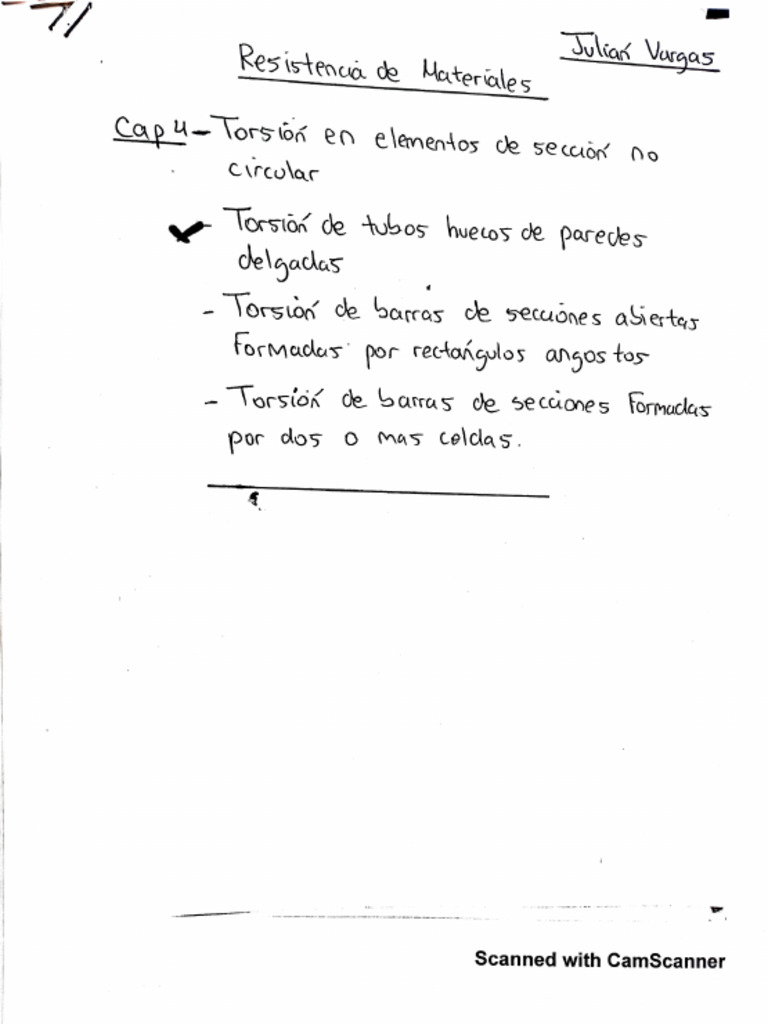 Julián Vargas
Resistencia de Materiales
Cap 4 - Torsión en elementos de sección no
circular
- Torsión de tubos huecos de paredes
delgadas
- Torsión de barras de secciones abiertas
formadas por rectángulos angostos
- Torsión de barras de secciones formadas
por dos o mas celdas.
Scanned with CamScanner